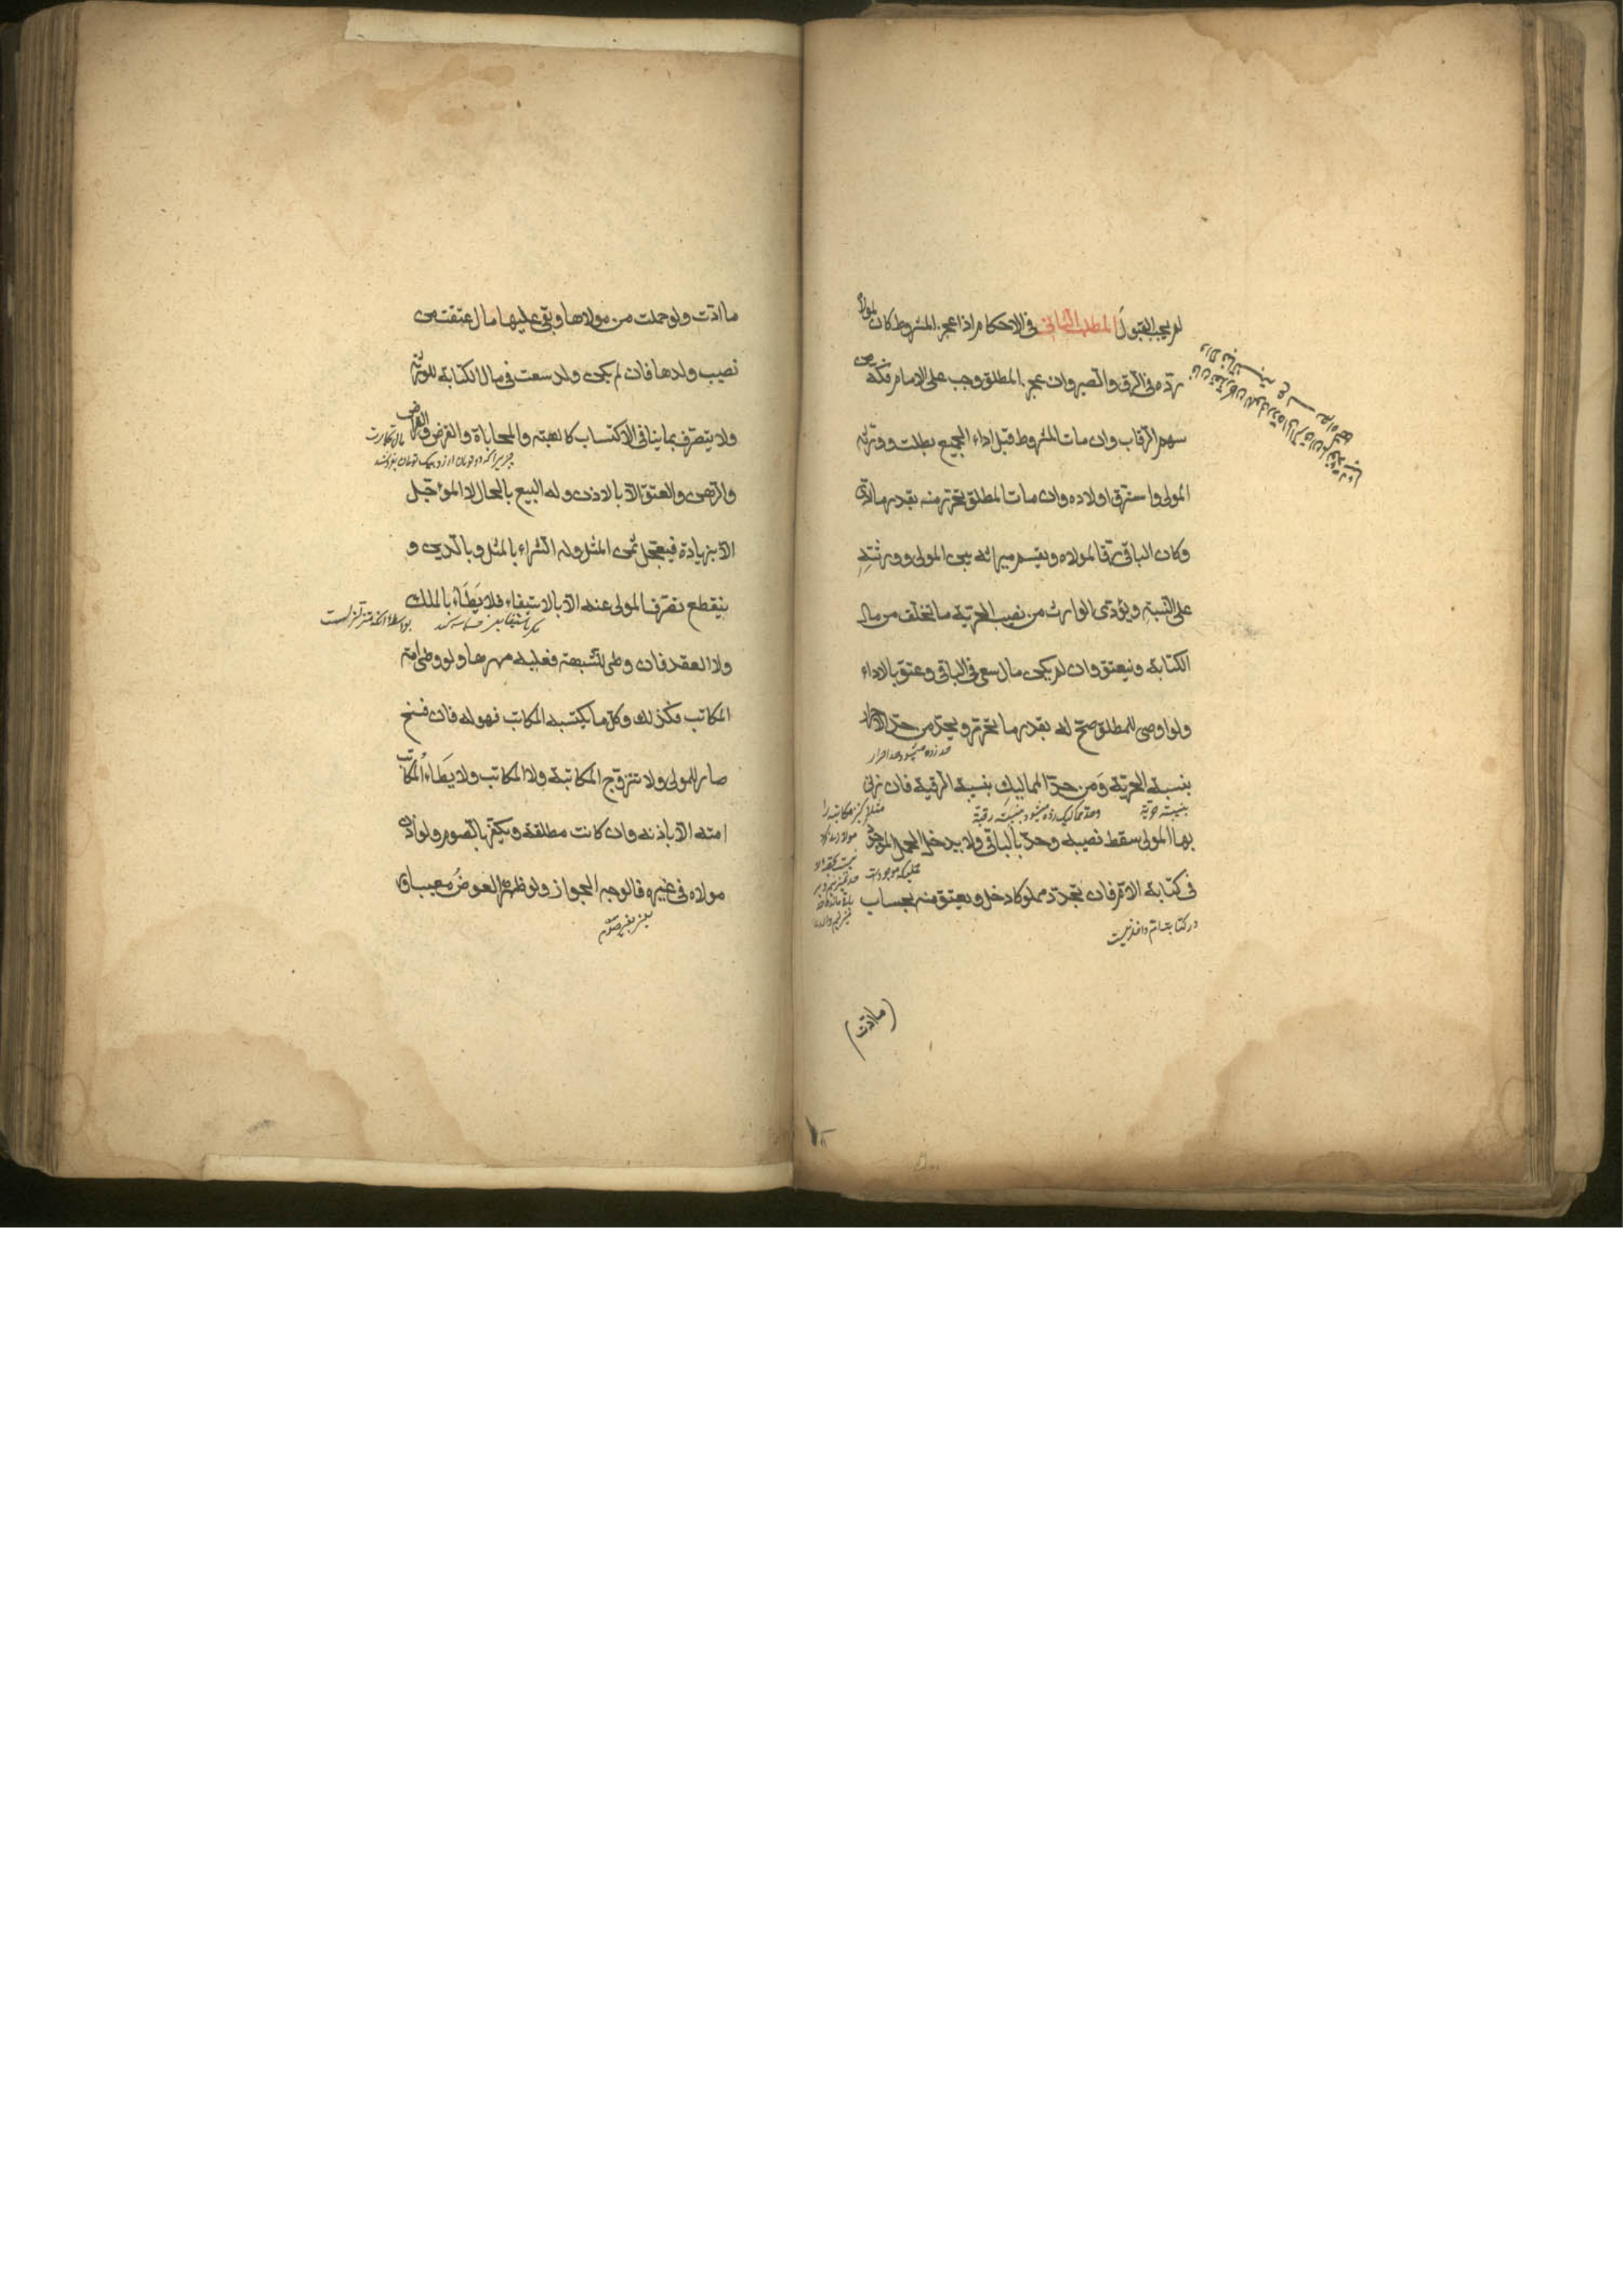 لم يجب القبول المطلب الثاني في الاحكام اذا عجز المشروط كان لمولاه
ردّه في الرق والصبر وان عجز المطلق وجب على الامام فكّه من
سهم الرقاب وان مات المشروط قبل اداء الجميع بطلت وورثه
المولى واسترق اولاده وان مات المطلق تحرّر منه بقدر ما ادّى
وكان الباقي رقا لمولاه ويقسم ميراثه بين المولى وورثته
على النسبة ويؤدى الوارث من نصيب الحرّية ما تخلّف من مال
الكتابة وينعتق وان لم يكن مال سعى في الباقي وعتق بالاداء
ولو اوصى للمطلق صحّ له بقدر ما تحرّر ويحدّ من حدّ الاحرار
حد زده میشود حد احرار
بنسبة الحرّية ومن حدّ المماليك بنسبة الرقية فان زنى
بنسبت حریّة وحد ممالیک زده میشود بنسبت رقیّة
بها المولى سقط نصيبه وحدّ بالباقي ولا يدخل الحمل الموجود
حملیکه موجود است
في كتابة الام فان تجدّد مملوكا دخل ويعتق منه بحساب
در کتابت ام داخل نیست
(ما ادّت)
ما ادّت ولو حملت من مولاها وبقي عليها مال عتقت من
نصيب ولدها فان لم يكن ولد سعت في مال الكتابة للورثة
ولا يتصرّف بما ينافي الاكتساب كالهبة والمحاباة والقرض والقراض
مال تجارت
والرهن والعتق الّا بالاذن وله البيع بالحال لا المؤجّل
الّا بزيادة فيعجّل ثمن المثل وله الشراء بالمثل وبالدين و
ينقطع تصرّف المولى عنه الّا بالاستيفاء فلا يَطَاء بالملك
ولا العقد فان وطى للشبهة فعليه مهرها ولو وطى امة
المكاتب فكذلك وكلّ ما يكتسبه المكاتب فهو له فان فسخ
صار للمولى ولا تتزوّج المكاتبة ولا المكاتب ولا يَطَاءُ المكاتب
امته الّا باذنه وان كانت مطلقة ويكفّر بالصوم ولو اذن
مولاه في غيره فالوجه الجواز ولو ظهر العوضُ معيبا ف
یعنی بغیر صوم